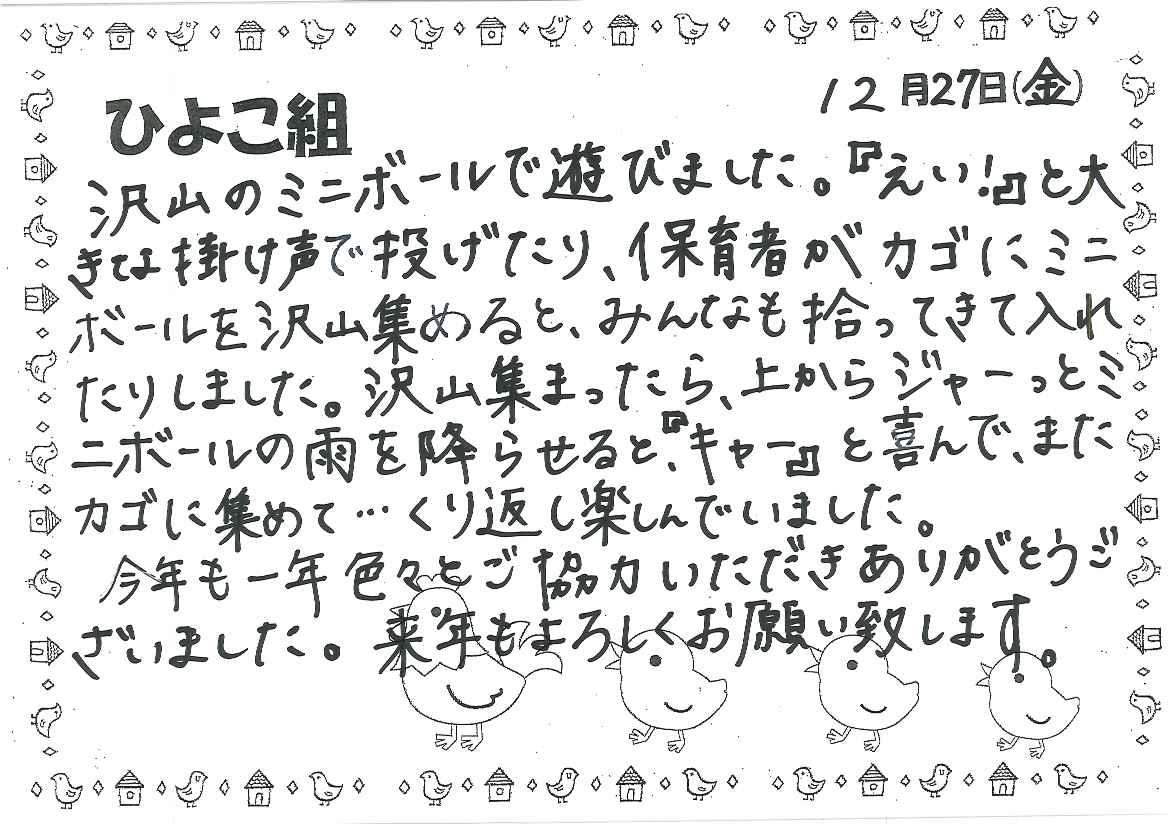 12月27日(金)
ひよこ組
沢山のミニボールで遊びました。『えい!』と大
きな掛け声で投げたり、保育者がカゴにミニ
ボールを沢山集めると、みんなも拾ってきて入れ
たりしました。沢山集まったら、上からジャーっとミ
ニボールの雨を降らせると、『キャー』と喜んで、また
カゴに集めて…くり返し楽しんでいました。
今年も一年色々とご協力いただきありがとうご
ざいました。来年もよろしくお願い致します。